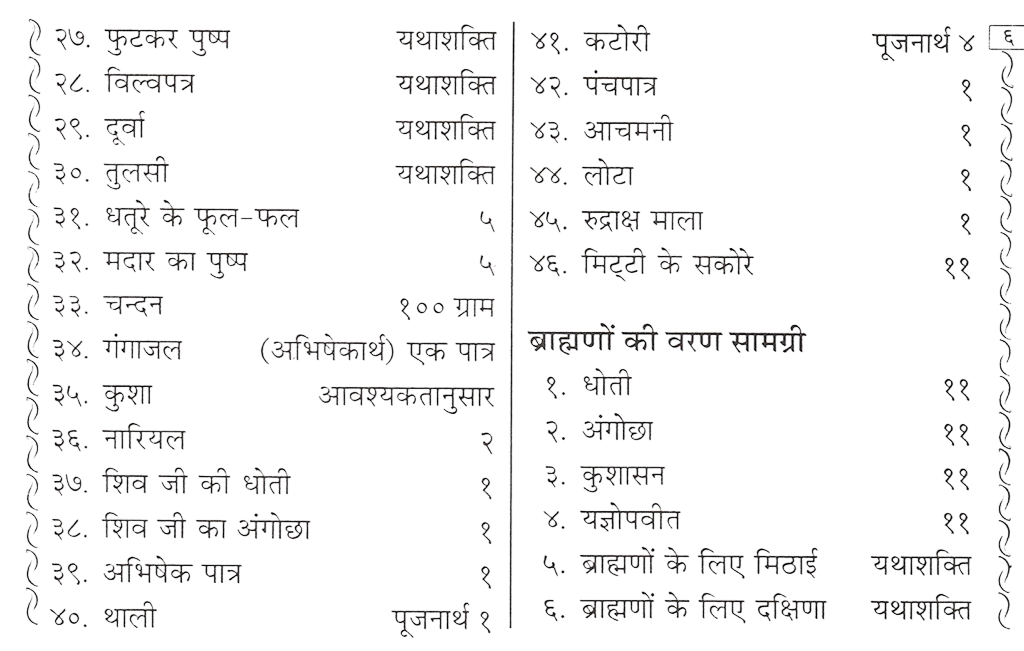 २७. फुटकर पुष्प यथाशक्ति
२८. विल्वपत्र यथाशक्ति
२९. दूर्वा यथाशक्ति
३०. तुलसी यथाशक्ति
३१. धतूरे के फूल-फल ५
३२. मदार का पुष्प ५
३३. चन्दन १०० ग्राम
३४. गंगाजल (अभिषेकार्थ) एक पात्र
३५. कुशा आवश्यकतानुसार
३६. नारियल २
३७. शिव जी की धोती १
३८. शिव जी का अंगोछा १
३९. अभिषेक पात्र १
४०. थाली पूजनार्थ १
४१. कटोरी पूजनार्थ ४
४२. पंचपात्र १
४३. आचमनी १
४४. लोटा १
४५. रुद्राक्ष माला १
४६. मिट्टी के सकोरे ११
ब्राह्मणों की वरण सामग्री
१. धोती ११
२. अंगोछा ११
३. कुशासन ११
४. यज्ञोपवीत ११
५. ब्राह्मणों के लिए मिठाई यथाशक्ति
६. ब्राह्मणों के लिए दक्षिणा यथाशक्ति
६